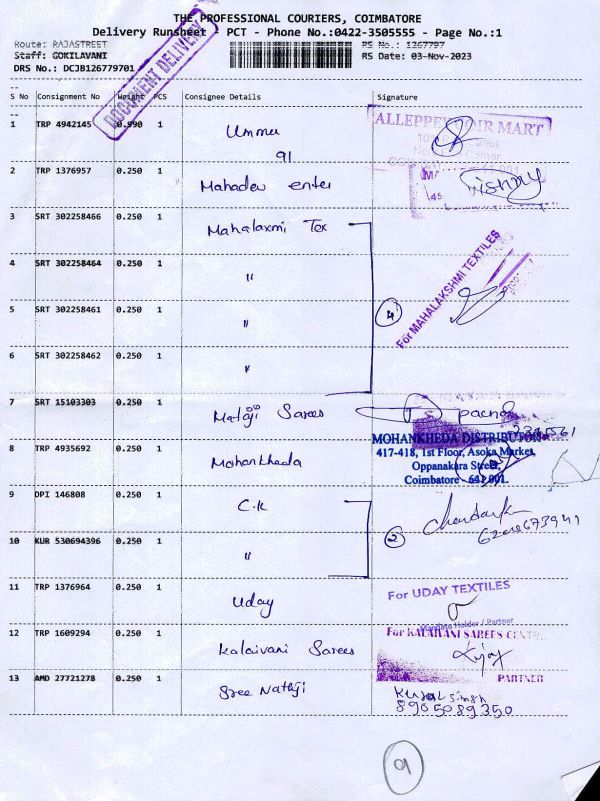 THE PROFESSIONAL COURIERS, COIMBATORE
Delivery Runsheet : PCT - Phone No.:0422-3505555 - Page No.:1
Route: RAJASTREET RS No.: 1267797
Staff: GOKILAVANI RS Date: 03-Nov-2023
DRS No.: DCJB126779701
DOCUMENT DELIVERY
S No Consignment No Weight PCS Consignee Details Signature
1 TRP 4942145 0.990 1 Ummu
91
ALLEPPEY COIR MART
2 TRP 1376957 0.250 1 Mahadev enter
Vishnu
3 SRT 302258466 0.250 1 Mahalaxmi Tex
4 SRT 302258464 0.250 1 "
For MAHALAKSHMI TEXTILES
5 SRT 302258461 0.250 1 " 4
6 SRT 302258462 0.250 1 "
7 SRT 15103303 0.250 1 Mataji Sarees
8 TRP 4935692 0.250 1 Mohankheda
MOHANKHEDA DISTRIBUTOR
417-418, 1st Floor, Asoka Market,
Oppanakara Street,
Coimbatore - 641 001.
9 DPI 146808 0.250 1 C.K
10 KUR 530694396 0.250 1 " 2
11 TRP 1376964 0.250 1 Uday
For UDAY TEXTILES
Mandate Holder / Partner
12 TRP 1609294 0.250 1 Kalaivani Sarees
For KALAIVANI SAREES CENTRE
PARTNER
13 AMD 27721278 0.250 1 Sree Nathji
8905089350
9